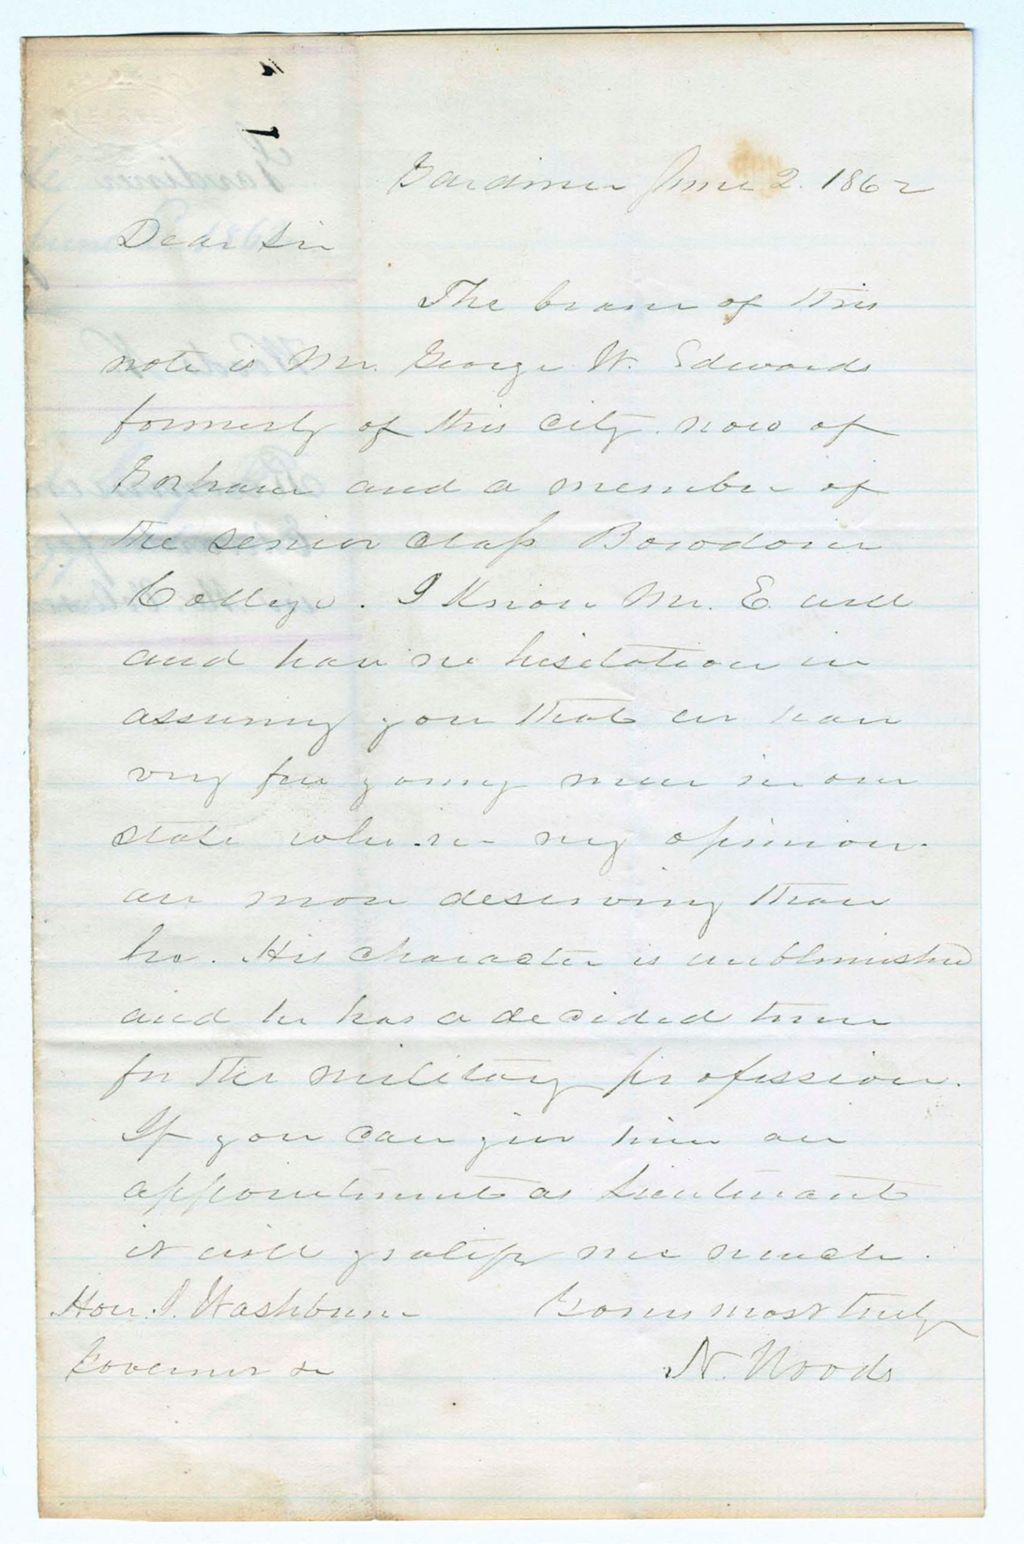 Gardiner June 2. 1862
Dear Sir
The bearer of this
note is Mr. George W. Edwards
formerly of this city now of
Gorham and a member of
the senior class Bowdoin
College. I know Mr. E. well
and have no hesitation in
assuring you that we have
very few young men in our
state who in my opinion
are more deserving than
he. His character is unblemished
and he has a decided turn
for the military profession.
If you can give him an
appointment as Lieutenant
it will gratify me much.
Hon. I. Washburn Yours most truly
Governor &c N. Woods